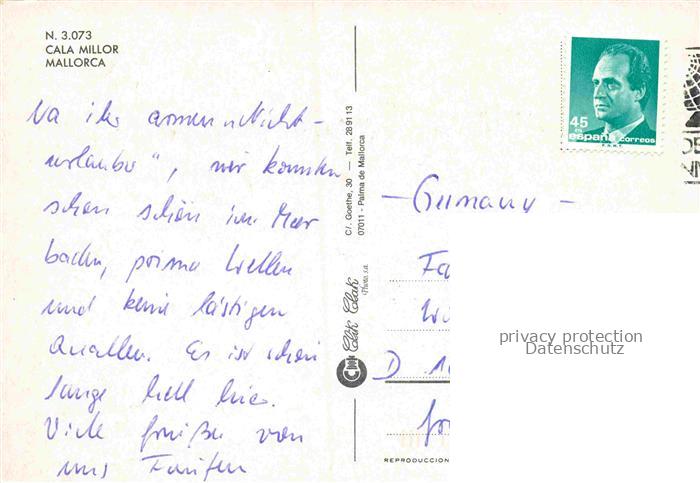 N. 3.073
CALA MILLOR
MALLORCA
Na ihr armen „Nicht-
urlauber“, wir konnten
schon schön im Meer
baden, prima Wellen
und keine lästigen
Quallen. Es ist schon
lange hell hier.
Viele Grüße von
uns Fünfen
C/. Goethe, 30 — Telf. 289113
07011 - Palma de Mallorca
Clak Clak
Photo, s.a.
REPRODUCCION
45
PTS
españa correos
- Germany -
D
privacy protection
Datenschutz